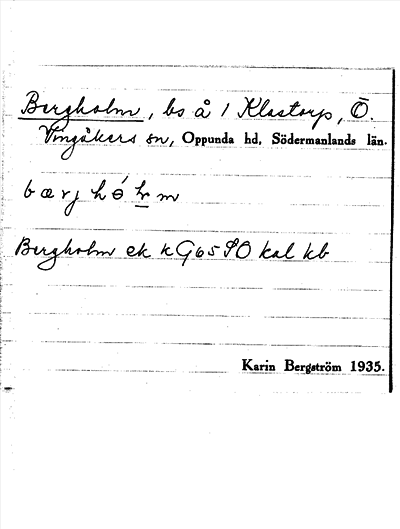 Bergholm, bs å 1 Klastorp, Ö.
Vingåkers sn, Oppunda hd, Södermanlands län.
Bergholm ek kG65 SO kal kb
Karin Bergström 1935.